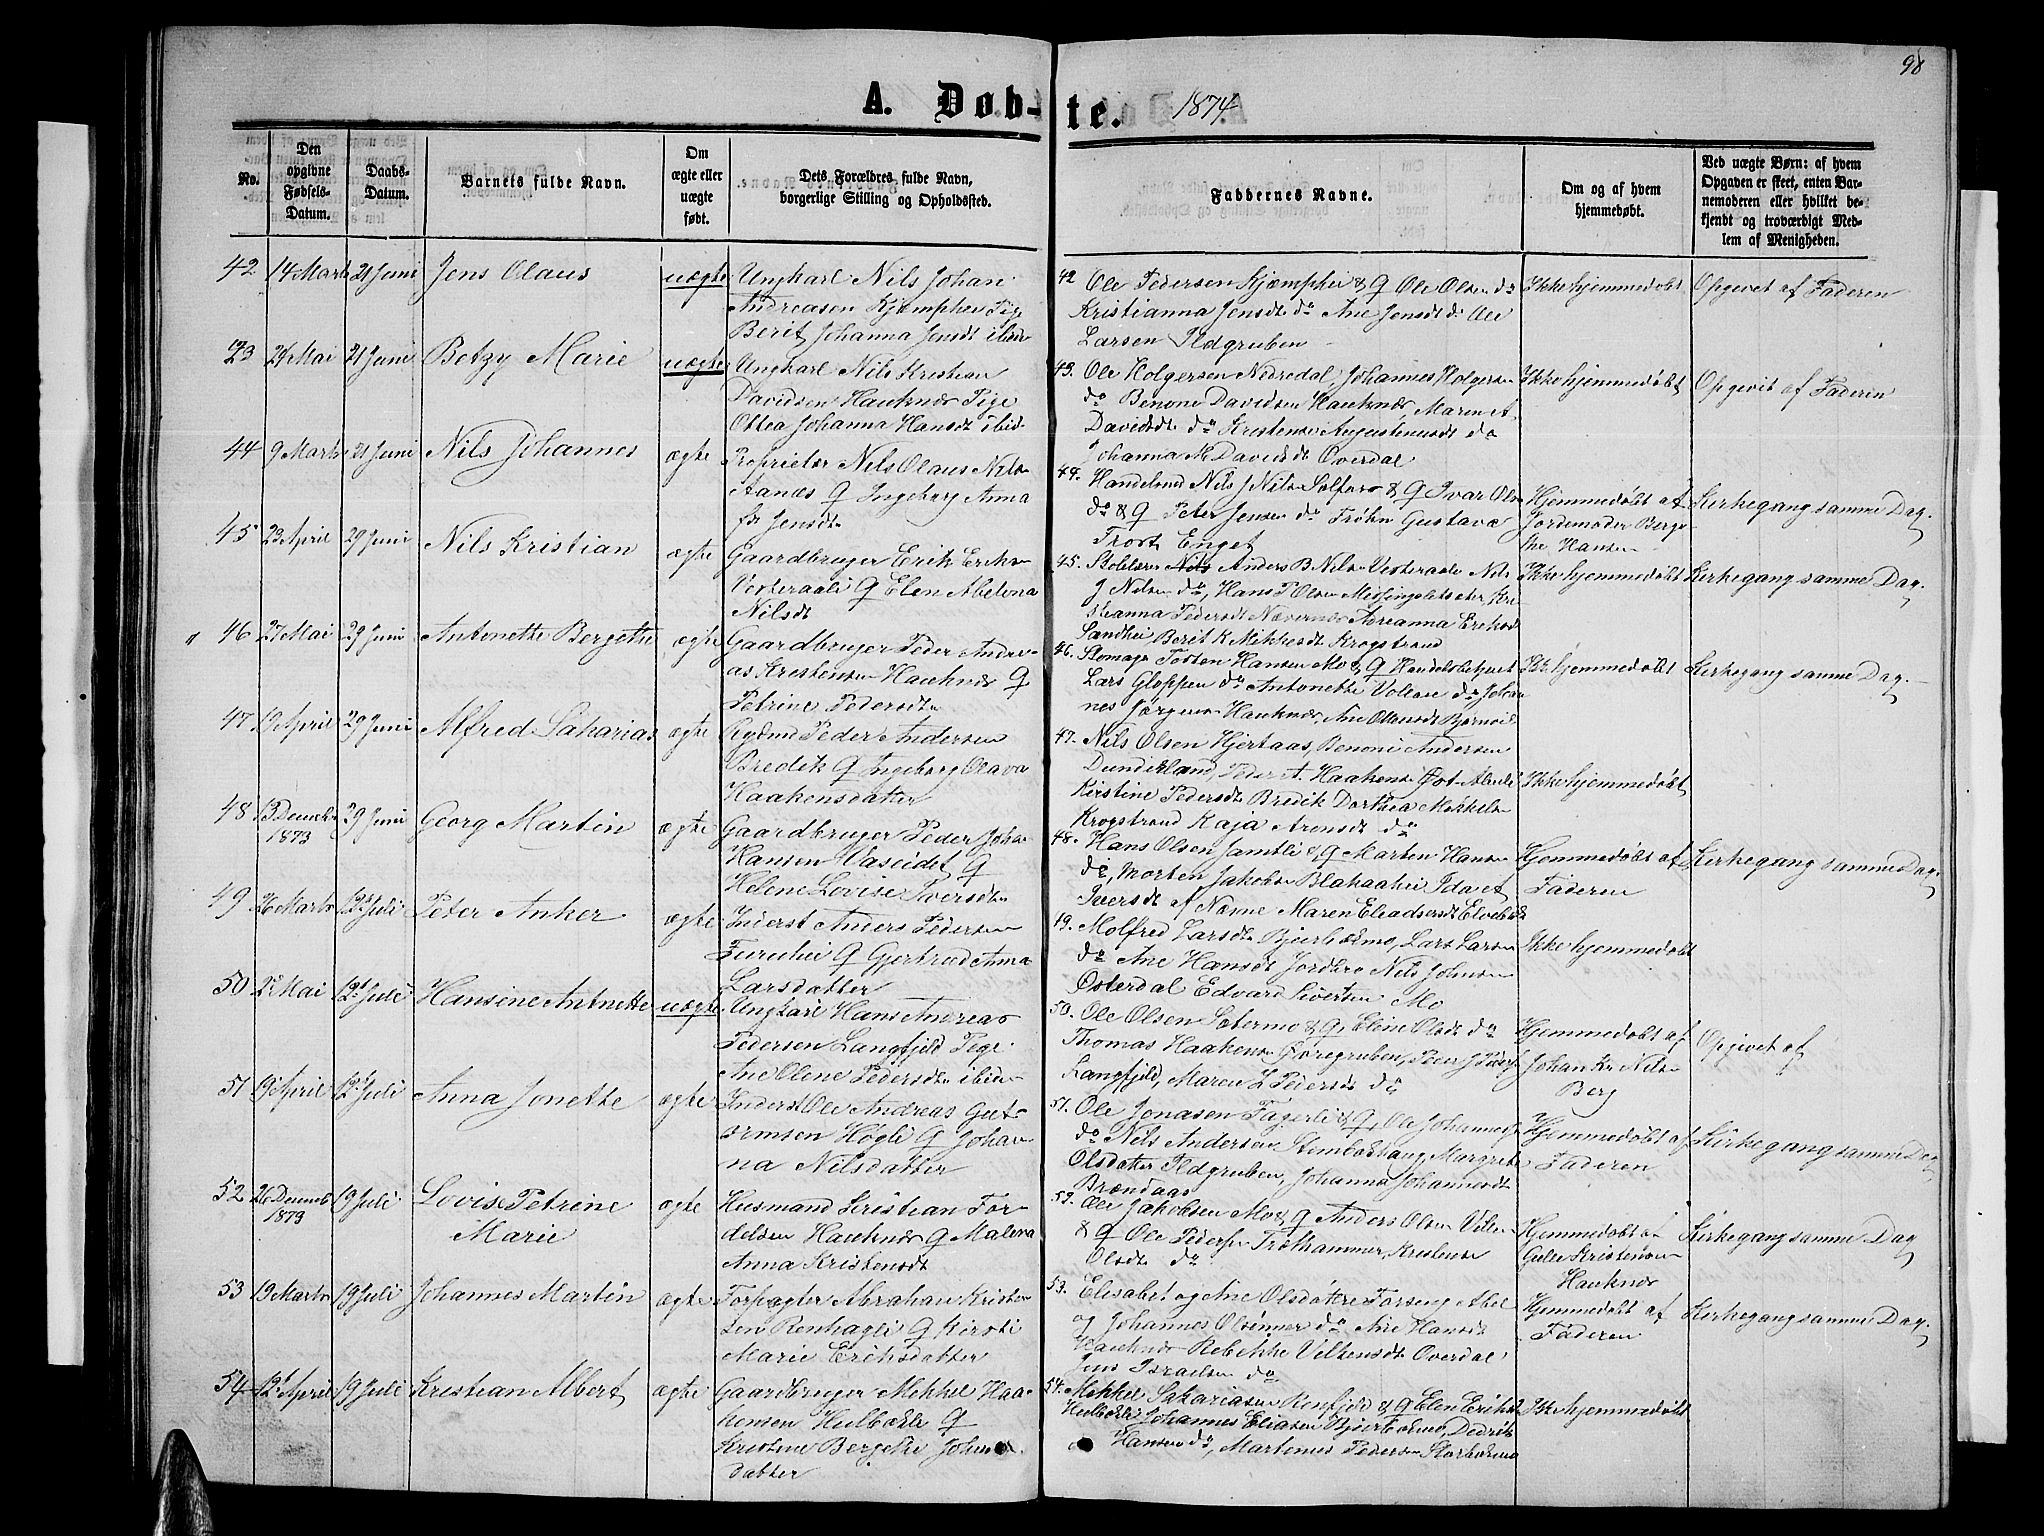 98
A. Døb-te. 1874
No.
Den opgivne Fødsels-Datum.
Daabs-Datum.
Barnets fulde Navn.
Om ægte eller uægte født.
Dets Forældres fulde Navn, borgerlige Stilling og Opholdssted.
Fadderners Navne.
Om og af hvem hjemmedøbt.
Ved uægte Børn: af hvem Opgaven er skeet, enten Barnemoderen eller hvilket bekjendt og troværdigt Medlem af Menigheden.
42 14 Marts 21 Juni Jens Olaus uægte Ungkarl Nils Johan
Andreasen Kjemphei Pige
Berit Johanna Jensdt ibid
42 Ole Pedersen Kjæmphei & Q Ole Olsen do
Kristianna Jensdt do Ane Jensdt do Ole
Larsen Ildgruben
Ikke hjemmedøbt Opgivet af Faderen
43 24 Mai 21 Juni Betzy Marie uægte Ungkarl Nils Kristian
Davidsen Hauknes Pige
Ottea Johanna Hansdt ibid
43. Ole Holgersen Nedredal, Johannes Holgersen
do Benone Davidsen Hauknes, Maren A
Davidsdt do Kristense Augustenusdt do
Johanna M Davidsdt Överdal
Ikke hjemmedøbt Opgivet af Faderen
44 9 Marts 21 Juni Nils Johannes ægte Proprietær Nils Olaus Nils
Aanæs Q Ingeborg Anna
f. Jensdt
44. Handelsmd Nils J Nilsen Selfors & Q Ivar Olsen
do & Q Peter Jensen do Frøkn Gustava
Frost Enget
Hjemmedøbt af
Jordemoder Berge
the Hansen
Kirkegang samme Dag.
45 23 April 29 Juni Nils Kristian ægte Gaardbruger Erik Eriks
Vesteraali Q Elen Abelona
Nilsdt
45. Skolelærer Anders B Nils Vesteraali Nils
J Nilsen do, Hans P Olsen Messingsletseter, Kri
stianna Pedersdt Nævernes Adrianna Eriksdt
Sandhei Berit K Mikkelsdt Krogstrand
Ikke hjemmedøbt Kirkegang samme Dag,
46 27 Mai 29 Juni Antonette Bergethe ægte Gaardbruger Peder Andre-
as Kristensen Hauknes Q
Petrine Pedersdt
46. Skomager Torsten Hansen Mo & Q Handelsbetjent
Lars Gloppen do Antonette Volase do Johan
nes Jørgens Hauknes, Ane Olausdt
Ikke hjemmedøbt Kirkegang samme Dag.
47 19 April 29 Juni Alfred Sakarias ægte Rydnmd Peder Andersen
Bredek Q Ingeborg Olava
Haakensdatter
47. Nils Olsen Hjertaas, Benoni Andersen
Dunderland, Peder A. Haakens
Kirstine Pedersdt Bredik Dorthea Mekkels
Krogstrand Kaja Arensdt do
Ikke hjemmedøbt
48 13 Decemb 1873 29 Juni Georg Martin ægte Gaardbruger Peder Joha-
Hansen Vaseidet Q
Helene Lovise Iversdt
48. Hans Olsen Jamtli & Q Marten Hans
do, Morten Jakobs Blakaahei Ida et
Iversdt af Nanne Maren Eliadsersdt
Hjemmedøbt af
Faderen
Kirkegang samme Dag.
49 26 Marts 12 Juli Peter Anker ægte Inderst Anders Pedersen
Furuhei Q Gjertrud Anna
Larsdatter
49. Molfred Larsdt Bjerbekmo, Lars Larsen
do Ane Hansdt Jordbro Nils Johnsen
Österdal Edvard Sivertsen Mo
Ikke hjemmedøbt
50 2 Mai 12 Juli Hansine Antnette uægte Ungkarl Hans Andreas
Pedersen Langfjeld Pige
Ane Olene Pedersdt ibid
50. Ole Olsen Setermo & Q Eline Olsdt do
Thomas Haakens Gregruben, Peder J Peders
Langfjeld, Maren L Pedersdt do
Hjemmedøbt af
Johan Kr Nils
Berg
Opgivet af
51 19 April 12 Juli Anna Jonette ægte Inderst Ole Andreas Gut-
ormsen Høgli Q Johan-
na Nilsdatter
51. Ole Jonasen Fagerli & Q, Ole Johannes
do Nils Andersen Stenbækhaug, Margrete
Olsdatter Ildgruben, Johanna Johannesdt
Brændaas
Hjemmedøbt af
Faderen
Kirkegang samme Dag
52 26 Decemb 1873 19 Juli Lovise Petrine
Marie ægte Husmand Kristian Tor-
delsen Hauknes Q Malena
Anna Kristensdt
52. Ole Jakobsen Mo & Q Anders Olsen
& Q Ole Peders Trolhammer,
Olsdt do
Hjemmedøbt af
Kristensen
Hauknes
Kirkegang samme Dag
53 19 Marts 19 Juli Johannes Martin ægte Forpagter Abraham Kristen
sen Renhagli Q Kirsti
Marie Eriksdatter
53. Elisabet og Ane Olsdøttre Forseng Abel
og Johannes do Ane Hansdt
Hauknes Rebekke Velkensdt Overdal
Jens Israelsen do
Hjemmedøbt af
Faderen
Kirkegang samme Dag.
54 12 April 19 Juli Kristian Albert ægte Gaardbruger Mekkel Haa-
kensen Hulbækli Q
Kristine Bergethe Johns
datter
54. Mekkel Sakariasen Renfjeld & Q Elen Eriksdt
Hulbækli Johannes Eliasen Bjerbekmo, Dedrik
Hansen do, Martenus Pedersen Storbekmo
Ikke hjemmedøbt